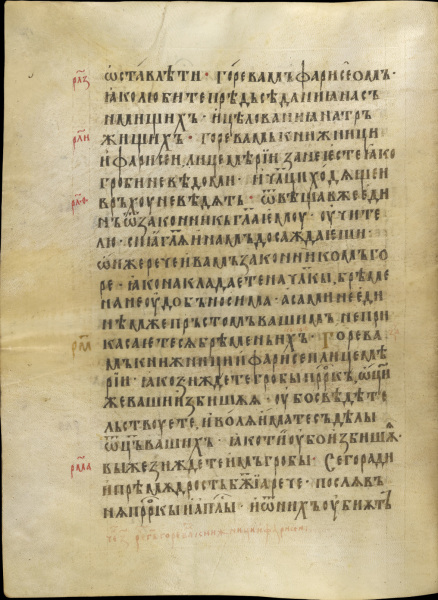 ѡставлѣти · горевамъфарисеѡмъ ·
ꙗколюбитепрѣдъсѣданиꙗнасъ
нмищихъ · ицѣлованиꙗнатръ
рли
жищихъ · горевамъкнижници
ифарисеилицемѣріи занеѥстеꙗко
гробиневѣдоми · иꙋлциходѧщеи
врьхоуневѣдѧть · ѿвѣщавжеѥди
нъѿзаконникьглаѥмоу · оучите
лю · сиꙗглѧинамъдосаждаеши ·
ѡнжеречеивамъзаконникомъго
ре · ꙗконакладаетеначлкы брѣме
нанеоудобьносима · асаминеѥди
нѣмжепръстомъвашимъ непри
касаетесѧбрѣменьихъ · Горева
мъкнижнициифарисеилицемѣ
ріи · ꙗкозиждетегробыпррѡкь ѡци
жевашиизбишѧѧ · оубосвѣдѣте
льствоуете иволѧиматесъдѣлы
ѿцьвашихъ · ꙗкотиоубоизбишѧ
рма
выжезиждетеимъгробы · Сегоради
ипрѣмѫдростьбжіꙗрече · послѧвъ
нѧпррѡкыиаплы · иѿнихъоубиѫть